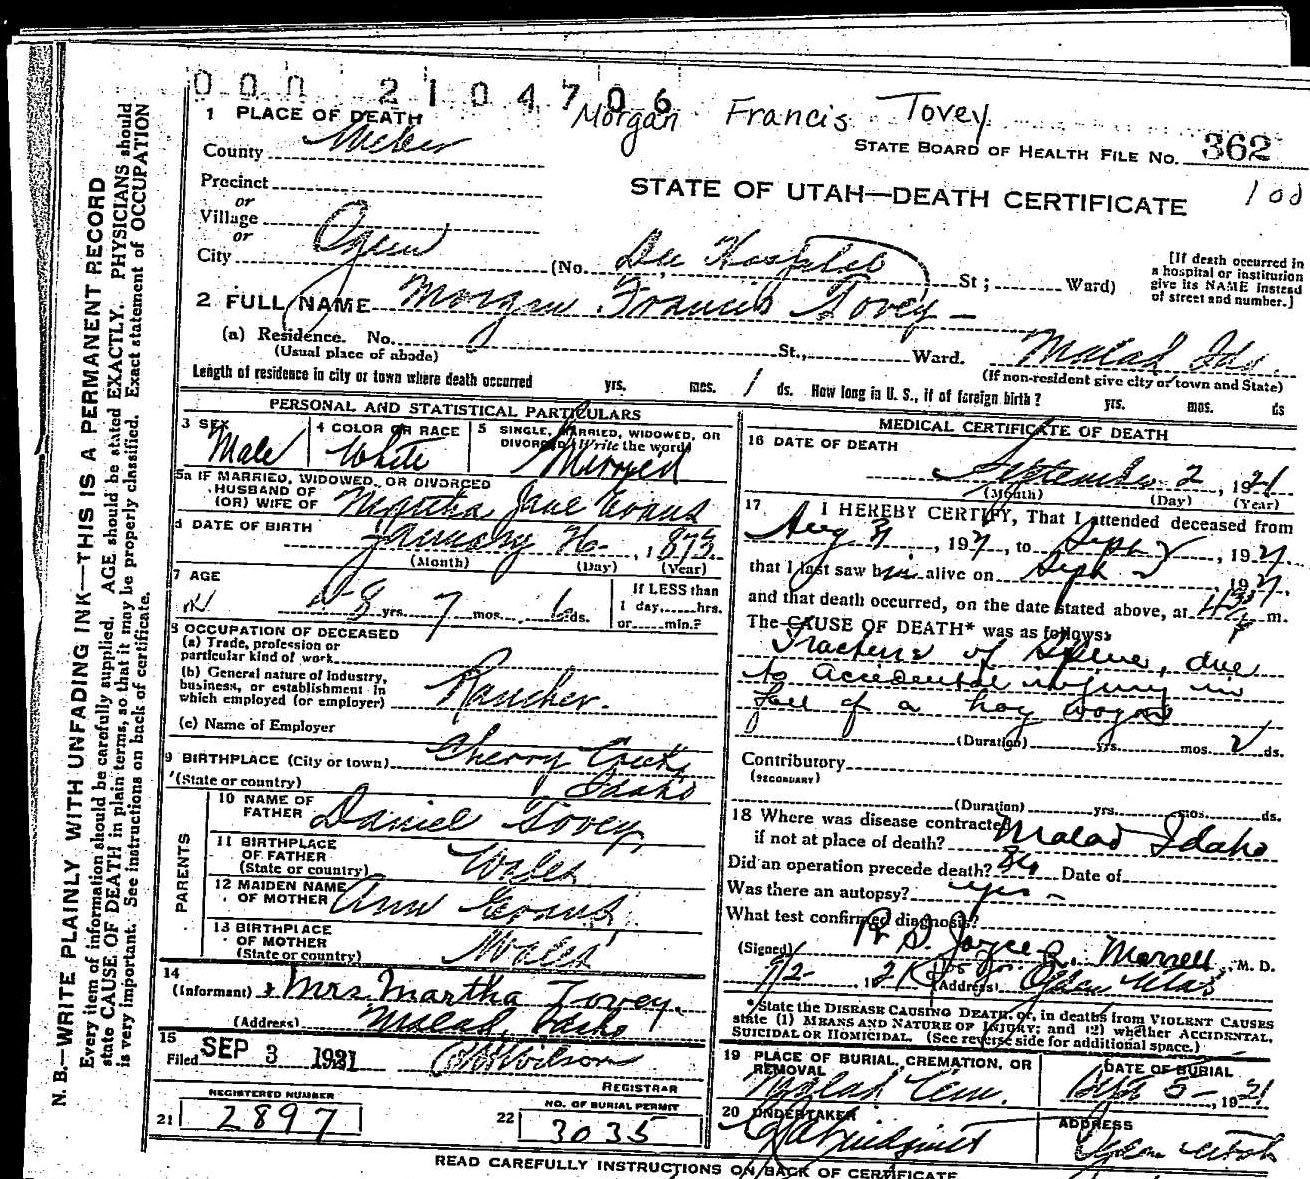 000 2104706
Morgan Francis Tovey
1 PLACE OF DEATH
STATE BOARD OF HEALTH FILE NO. 362
County Weber
100
Precinct
STATE OF UTAH—DEATH CERTIFICATE
or
Village
or
City Ogden (No. Dee Hospital St; Ward)
[If death occurred in
a hospital or institution
give its NAME instead
of street and number.]
2 FULL NAME Morgan Francis Tovey
(a) Residence. No. St., Ward. Malad Ida.
(Usual place of abode) (If non-resident give city or town and State)
Length of residence in city or town where death occurred yrs. mos. 1 ds. How long in U. S., if of foreign birth? yrs. mos. ds
PERSONAL AND STATISTICAL PARTICULARS
3 SEX Male
4 COLOR OR RACE White
5 SINGLE, MARRIED, WIDOWED, OR
DIVORCED (Write the word) Married
5a IF MARRIED, WIDOWED, OR DIVORCED
HUSBAND OF
(OR) WIFE OF Martha Jane Evans
6 DATE OF BIRTH January 26, 1873
(Month) (Day) (Year)
7 AGE 48 yrs. 7 mos. 6 ds.
If LESS than
1 day, hrs.
or min.?
8 OCCUPATION OF DECEASED
(a) Trade, profession or
particular kind of work
(b) General nature of Industry,
business, or establishment in
which employed (or employer) Rancher.
(c) Name of Employer
9 BIRTHPLACE (City or town) Cherry Creek
(State or country) Idaho
PARENTS
10 NAME OF
FATHER Daniel Tovey
11 BIRTHPLACE
OF FATHER
(State or country) Wales
12 MAIDEN NAME
OF MOTHER Ann Evans
13 BIRTHPLACE
OF MOTHER
(State or country) Wales
14
(Informant) Mrs Martha Tovey.
(Address) Malad, Idaho
15
Filed SEP 3 1921 Wilson
REGISTRAR
REGISTERED NUMBER
21 2897
NO. OF BURIAL PERMIT
22 3035
MEDICAL CERTIFICATE OF DEATH
16 DATE OF DEATH
September 2, 1921
(Month) (Day) (Year)
17 I HEREBY CERTIFY, That I attended deceased from
Aug 31, 1921, to Sept 2, 1921
that I last saw him alive on Sept 2, 1921,
and that death occurred, on the date stated above, at m.
The CAUSE OF DEATH* was as follows:
Fracture of Spine, due
to accidental injury in
fall of a hay wagon
(Duration) yrs. mos. 2 ds.
Contributory
(SECONDARY)
(Duration) yrs. mos. ds.
18 Where was disease contracted
if not at place of death? Malad Idaho
Did an operation precede death? Date of
Was there an autopsy? yes
What test confirmed diagnosis?
(Signed) R. S. Joyce Morrell, M. D.
9/2, 1921 (Address) Ogden Utah
*State the DISEASE CAUSING DEATH, or, in deaths from VIOLENT CAUSES
state (1) MEANS AND NATURE OF INJURY; and (2) whether ACCIDENTAL,
SUICIDAL or HOMICIDAL. (See reverse side for additional space.)
19 PLACE OF BURIAL, CREMATION, OR
REMOVAL
Malad Cem.
DATE OF BURIAL
5, 1921
20 UNDERTAKER
ADDRESS
Ogden Utah
READ CAREFULLY INSTRUCTIONS ON BACK OF CERTIFICATE
N. B.—WRITE PLAINLY WITH UNFADING INK—THIS IS A PERMANENT RECORD
Every item of information should be carefully supplied. AGE should be stated EXACTLY. PHYSICIANS should
state CAUSE OF DEATH in plain terms, so that it may be properly classified. Exact statement of OCCUPATION
is very important. See instructions on back of certificate.